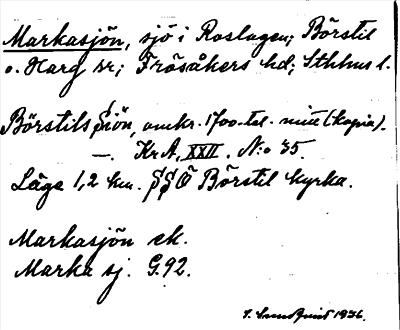 Markasjön, sjö i Roslagen; Börstil
o. Harg sr; Frösåkers hd; Sthlms l.
Börstils Siön, omkr. 1700-tal. mitt (kopia).
—. KrA, XXII. N:o 35.
Läge 1,2 km. SSÖ Börstil kyrka.
Markasjön ek.
Marka sj. G.92.
1936.